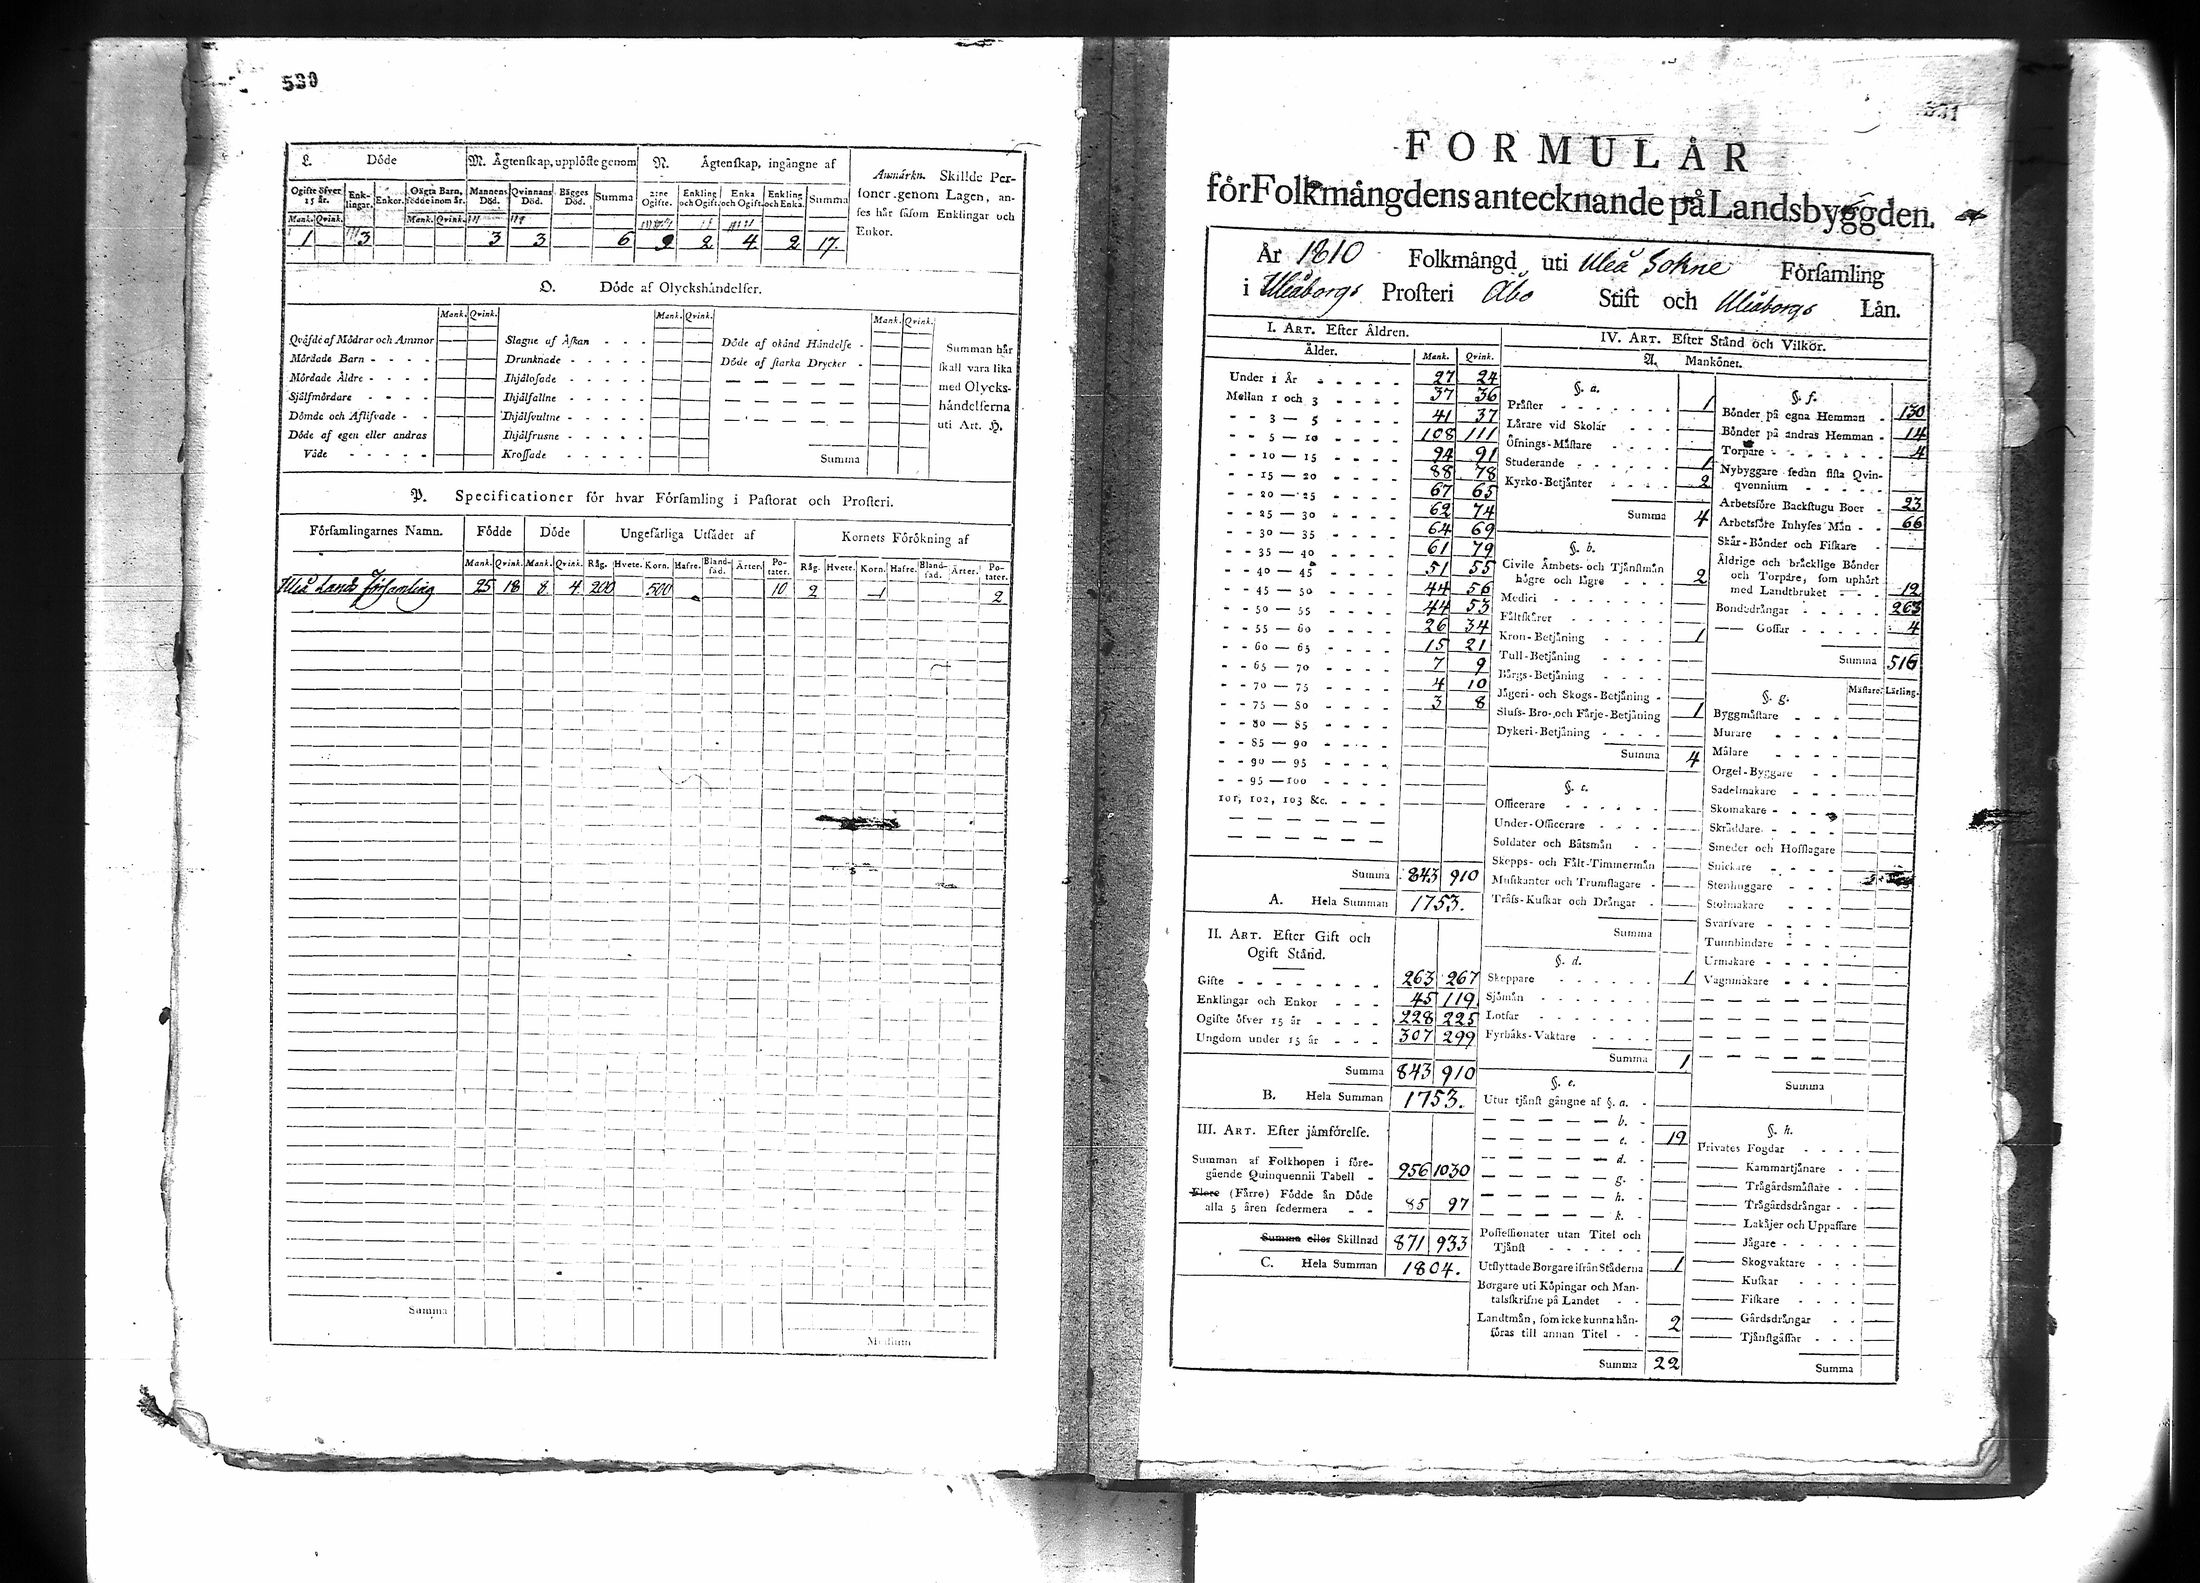 530
L. Döde
M. Ägtenskap, upplöste genom
N. Ägtenskap, ingångne af
Anmärkn. Skillde Per-
soner genom Lagen, an-
ses här såsom Enklingar och
Enkor.
Ogifte öfver 15 år. Enk-lingar. Enkor. Oägta Barn, födde inom år. Mannens Död. Qvinnans Död. Bägges Död. Summa 2:ne Ogifte. Enkling och Ogift. Enka och Ogift. Enkling och Enka. Summa
Mank. Qvink. Mank. Qvink.
1 3 3 3 6 9 2 4 2 17.
O. Döde af Olyckshändelser.
Mank. Qvink. Mank. Qvink. Mank. Qvink.
Qväfde af Mödrar och Ammor
Mördade Barn - - - -
Mördade Äldre - - - -
Självmördare - - - - -
Dömde och Aflifvade - -
Döde af egen eller andras
Våde - - - - -
Slagne af Åskan - - -
Drunknade - - - - -
Ihjälosade - - - - -
Ihjälfallne - - - - -
Ihjälsvultne - - - - -
Ihjälfrusne - - - - -
Krossade - - - - -
Döde af okänd Händelse -
Döde af starka Drycker -
Summa
Summan här
skall vara lika
med Olycks-
händelserna
uti Art. H.
P. Specificationer för hvar Församling i Pastorat och Prosteri.
Församlingarnes Namn. Födde Döde Ungefärliga Utsädet af Kornets Förökning af
Mank. Qvink. Mank. Qvink. Råg. Hvete. Korn. Hafre. Bland-säd. Ärter. Po-tater. Råg. Hvete. Korn. Hafre. Bland-säd. Ärter. Po-tater.
Uleå Lands församling 25 18 8 4 200 500 10 2 1 2
Summa
Medium
531
FORMULÄR
för Folkmängdens antecknande på Landsbyggden.
År 1810 Folkmängd uti Uleå Sokne Församling
i Uleåborgs Prosteri Åbo Stift och Uleåborgs Län.
I. ART. Efter Åldren.
Ålder. Mank. Qvink.
Under 1 År - - - - - 27 24
Mellan 1 och 3 - - - - 37 36
- - 3 — 5 - - - - 41 37
- - 5 — 10 - - - - 108 111
- - 10 — 15 - - - - 94 91
- - 15 — 20 - - - - 88 78
- - 20 — 25 - - - - 67 65
- - 25 — 30 - - - - 62 74
- - 30 — 35 - - - - 64 69
- - 35 — 40 - - - - 61 79
- - 40 — 45 - - - - 51 55
- - 45 — 50 - - - - 44 56
- - 50 — 55 - - - - 44 53
- - 55 — 60 - - - - 26 34
- - 60 — 65 - - - - 15 21
- - 65 — 70 - - - - 7 9
- - 70 — 75 - - - - 4 10
- - 75 — 80 - - - - 3 8
- - 80 — 85 - - - -
- - 85 — 90 - - - -
- - 90 — 95 - - - -
- - 95 — 100 - - - -
101, 102, 103 &c. - - -
Summa 843 910
A. Hela Summan 1753.
II. ART. Efter Gift och
Ogift Stånd.
Gifte - - - - - - - - 263 267
Enklingar och Enkor - - - 45 119
Ogifte öfver 15 år - - - - 228 225
Ungdom under 15 år - - - 307 299
Summa 843 910
B. Hela Summan 1753.
III. ART. Efter jämförelse.
Summan af Folkhopen i före-
gående Quinquennii Tabell - 956 1030
Flere (Färre) Födde än Döde
alla 5 åren sedermera - - 85 97
Summa eller Skillnad 871 933
C. Hela Summan 1804.
IV. ART. Efter Stånd och Vilkor.
A. Mankönet.
§. a.
Präster - - - - - - - 1
Lärare vid Skolar - - -
Öfnings-Mästare - - - -
Studerande - - - - - 1
Kyrko-Betjänter - - - - 2
Summa 4
§. b.
Civile Ämbets- och Tjänstmän
högre och lägre - - - 2
Medici - - - - - - -
Fältskärer - - - - - -
Kron-Betjäning - - - - 1
Tull-Betjäning - - - -
Bärgs-Betjäning - - - -
Jägeri- och Skogs-Betjäning -
Sluss- Bro- och Färje-Betjäning 1
Dykeri-Betjäning - - - -
Summa 4
§. c.
Officerare - - - - -
Under-Officerare - - - -
Soldater och Båtsmän - -
Skepps- och Fält-Timmermän
Musikanter och Trumslagare -
Träss-Kuskar och Drängar -
Summa
§. d.
Skeppare - - - - - - 1
Sjömän - - - - - - -
Lotsar - - - - - - -
Fyrbåks-Vaktare - - - -
Summa 1
§. e.
Utur tjänst gångne af §. a. -
— — — — — b. -
— — — — — c. - 19
— — — — — d. -
— — — — — g. -
— — — — — h. -
— — — — — k. -
Possessionater utan Titel och
Tjänst - - - - - -
Utflyttade Borgare ifrån Städerna 1
Borgare uti Köpingar och Man-
talsskrifne på Landet - -
Landtmän, som icke kunna hän-
föras till annan Titel - - 2
Summa 22
§. f.
Bönder på egna Hemman - 130
Bönder på andras Hemman - 14
Torpare - - - - - - - 4
Nybyggare sedan sista Qvin-
qvennium - - - - -
Arbetsföre Backstugu Boer - 23
Arbetsföre Inhyses Män - - 66
Skär-Bönder och Fiskare -
Äldrige och bräcklige Bönder
och Torpare, som uphört
med Landtbruket - - - 12
Bondedrängar - - - - - 263
—— Gossar - - - - - 4
Summa 516
§. g. Mästare. Lärling.
Byggmästare - - -
Murare - - - -
Målare - - - -
Orgel-Byggare - -
Sadelmakare - - -
Skomakare - - - -
Skräddare - - - -
Smeder och Hofslagare
Snickare - - - -
Stenhuggare - - -
Stolmakare - - -
Svarfvare - - - -
Tunnbindare - - -
Urmakare - - - -
Vagnmakare - - -
Summa
§. h.
Privates Fogdar - - - -
—— Kammartjänare - -
—— Trägårdsmästare - -
—— Trägårdsdrängar - -
—— Lakäjer och Uppassare
—— Jägare - - - - -
—— Skogvaktare - - -
—— Kuskar - - - -
—— Fiskare - - - -
—— Gårdsdrängar - -
—— Tjänstgässar - - -
Summa